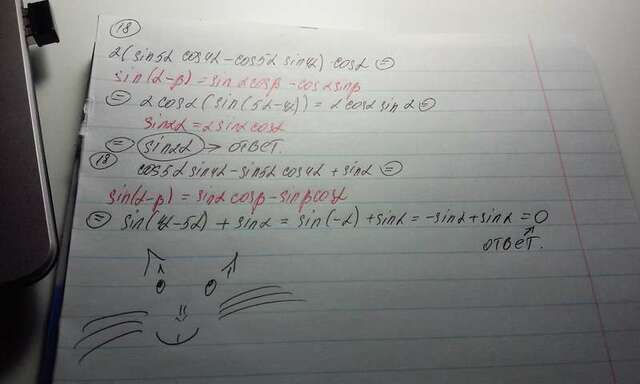 18
2(sin5α cos4α - cos5α sin4α)·cosα =
sin(α-β) = sinαcosβ - cosαsinβ
= 2cosα(sin(5α-4α)) = 2cosα sinα =
sin2α = 2sinαcosα
= sin2α → ответ.
18
cos5α sin4α - sin5α cos4α + sinα =
sin(α-β) = sinα cosβ - sinβcosα
= sin(4α-5α) + sinα = sin(-α) + sinα = -sinα + sinα = 0
ответ.